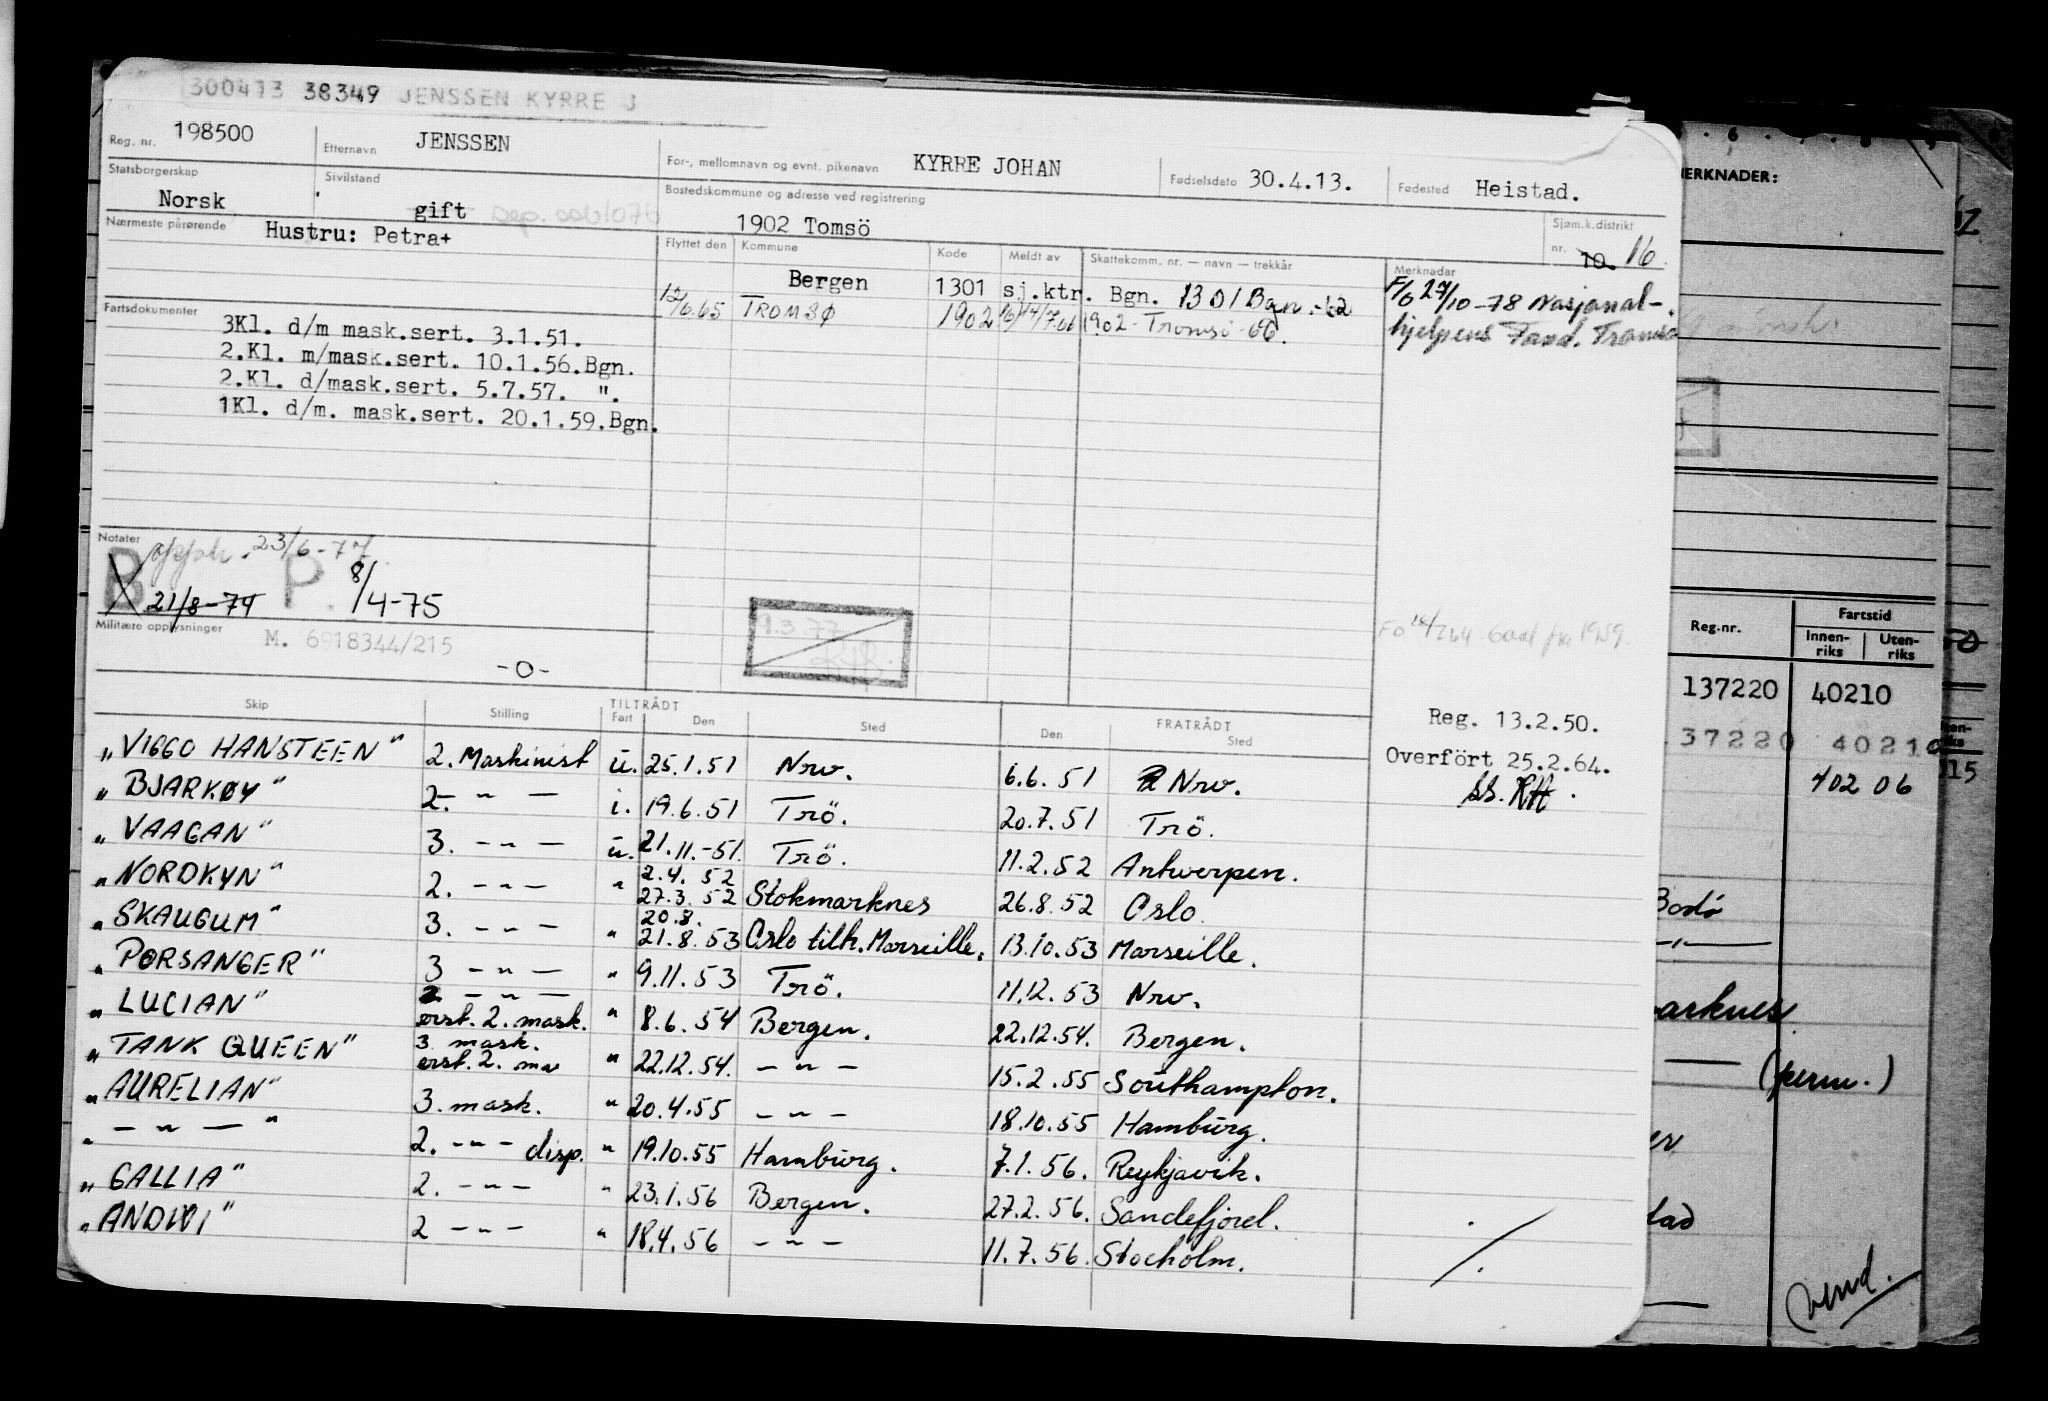 300413 38349 JENSSEN KYRRE J
Reg. nr. 198500 Etternavn JENSSEN For-, mellomnavn og evnt. pikenavn KYRRE JOHAN Fødselsdato 30.4.13. Fødested Heistad.
Statsborgerskap Norsk Sivilstand gift Bostedskommune og adresse ved registrering 1902 Tomsö Sjøm.k.distrikt nr. 10. 16.
Nærmeste pårørende Hustru: Petra+ Flyttet den Kommune Kode Meldt av Skattekomm. nr. — navn — trekkår Merknader
Bergen 1301 sj.ktr. Bgn. 1301 Bgn. F/o 27/10-78 Nasjonal-
12/6.65 TROMSØ 1902 1902-Tromsö-66. hjelpens Fond. Tromsø
Fartsdokumenter
3Kl. d/m mask.sert. 3.1.51.
2.Kl. m/mask.sert. 10.1.56.Bgn.
2.Kl. d/mask.sert. 5.7.57. ".
1Kl. d/m. mask.sert. 20.1.59.Bgn.
Notater
oppg. 23/6-77
B P. 8/4-75
21/8-74
Militære opplysninger M. 6918344/215
-0-
9.3.77
Reg. 13.2.50.
Overfört 25.2.64.
Skip Stilling TILTRÅDT Fart Den Sted FRATRÅDT Den Sted
"VIGGO HANSTEEN" 2. Maskinist u. 25.1.51 Nrv. 6.6.51 Nrv.
"BJARKØY" 2. -"- i. 19.6.51 Trö. 20.7.51 Trö.
"VAAGAN" 3. -"- u. 21.11.-51. Trö. 11.2.52 Antwerpen.
"NORDKYN" 2. -"- " 2.4.52 27.3.52 Stokmarknes 26.8.52 Oslo.
"SKAUGUM" 3. -"- " 20.8. 21.8.53 Oslo tilh. Marseille. 13.10.53 Marseille.
"PORSANGER" 3 -"- " 9.11.53 Trö. 11.12.53 Nrv.
"LUCIAN" 2 -"- erst. 2. mask. " 8.6.54 Bergen. 22.12.54. Bergen.
"TANK QUEEN" 3. mask. erst. 2. ma " 22.12.54. -"- 15.2.55 Southampton.
"AURELIAN" 3. mask. " 20.4.55 -"- 18.10.55 Hamburg.
" -"- " 2. -"- disp. " 19.10.55 Hamburg. 7.1.56. Reykjavik.
"GALLIA" 2. -"- " 23.1.56 Bergen. 27.2.56. Sandefjord.
"ANDWI" 2 -"- " 18.4.56 -"- 11.7.56. Stocholm.
MERKNADER:
Reg.nr. Fartstid
Innen-riks Uten-riks
137220 40210
37220 40210
40206
Bodø
(perm.)
vend.